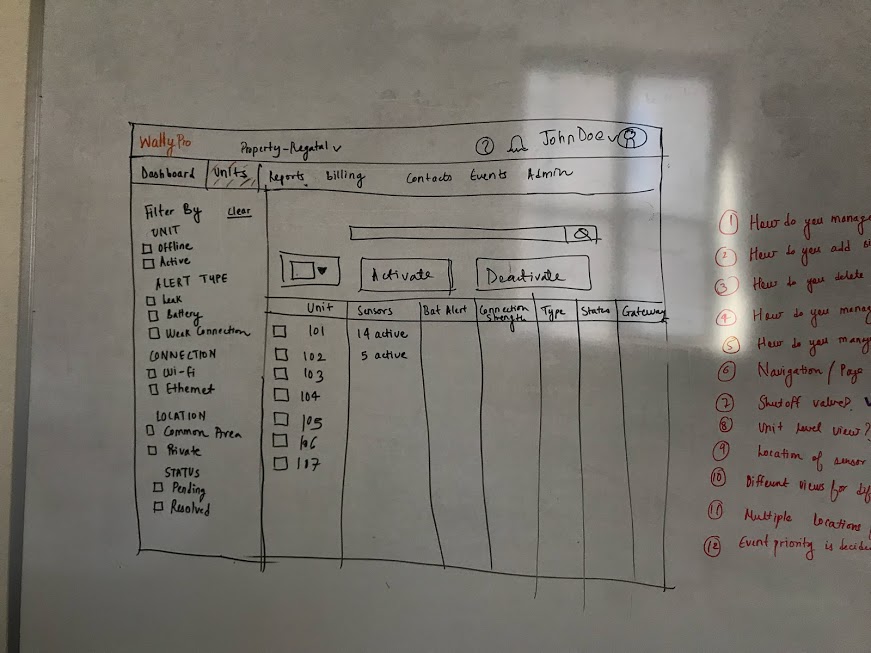 Wally Pro
Property-Regatal
?
John Doe
Dashboard Units Reports Billing Contacts Events Admin
Filter By Clear
UNIT
Offline
Active
ALERT TYPE
Leak
Battery
Weak Connection
CONNECTION
Wi-Fi
Ethernet
LOCATION
Common Area
Private
STATUS
Pending
Resolved
Activate Deactivate
Unit Sensors Bat Alert Connection Strength Type Status Gateway
101 14 active
102 5 active
103
104
105
106
107
1 How do you manage
2 How do you add
3 How do you delete
4 How do you manag
5 How do you manag
6 Navigation / Page
7 Shutoff valves?
8 Unit level view?
9 Location of sensor
10 Different views for dif
11 Multiple Locations
12 Event priority is decide